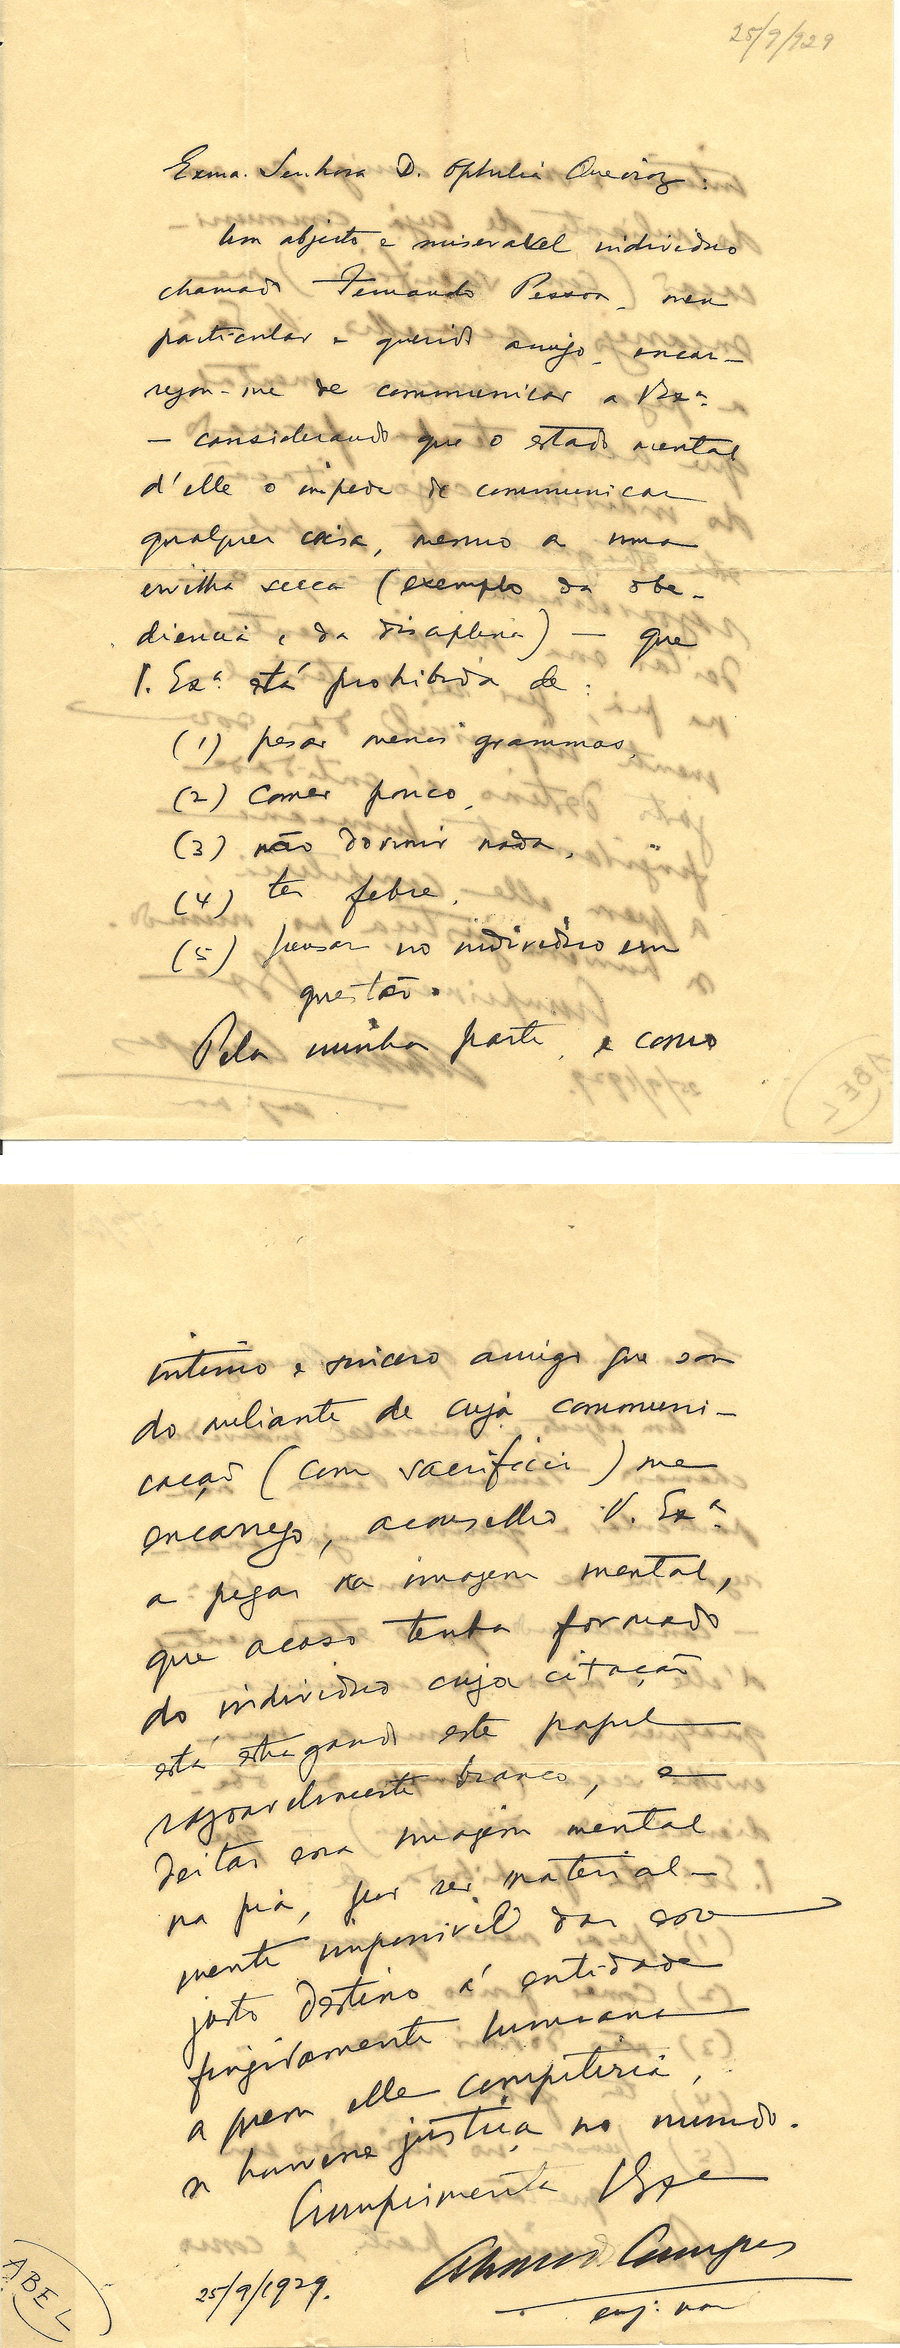 25/9/929
Exma. Senhora D. Ophelia Queiroz:
Um abjecto e miseravel individuo
chamado Fernando Pessoa, meu
particular e querido amigo, encar-
regou-me de communicar a V. Ex.ª
— considerando que o estado mental
d'elle o impede de communicar
qualquer coisa, mesmo a uma
ervilha secca (exemplo da obe-
diencia e da disciplina) — que
V. Ex.ª está prohibida de:
(1) pesar menos grammas,
(2) comer pouco,
(3) não dormir nada,
(4) ter febre,
(5) pensar no individuo em
questão.
Pela minha parte, e como
intimo e sincero amigo que sou
do meliante de cuja communi-
cação (com sacrificio) me
encarrego, aconselho V. Ex.ª
a pegar na imagem mental,
que acaso tenha formado
do individuo cuja citação
está estragando este papel
razoavelmente branco, e
deitar essa imagem mental
na pia, por ser material-
mente impossivel dar esse
justo destino á entidade
fingidamente humana
a quem elle competiria,
se houvesse justiça no mundo.
Cumprimenta V. Ex.ª
Alvaro de Campos
eng. naval
25/9/1929.
ABEL